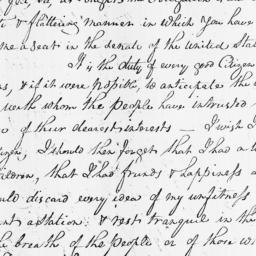 & flattering manner in which you have
me a seat in the senate of the United Stat
It is the duty of every good Citizen
s, & if it were possible, to anticipate the
with whom the People have intrusted
of their dearest interests — I wish I
I should then forget that I had a
children, that I had friends & happiness
discard every idea of my unfitness
station: & rest tranquil in the
breath of the People or of those